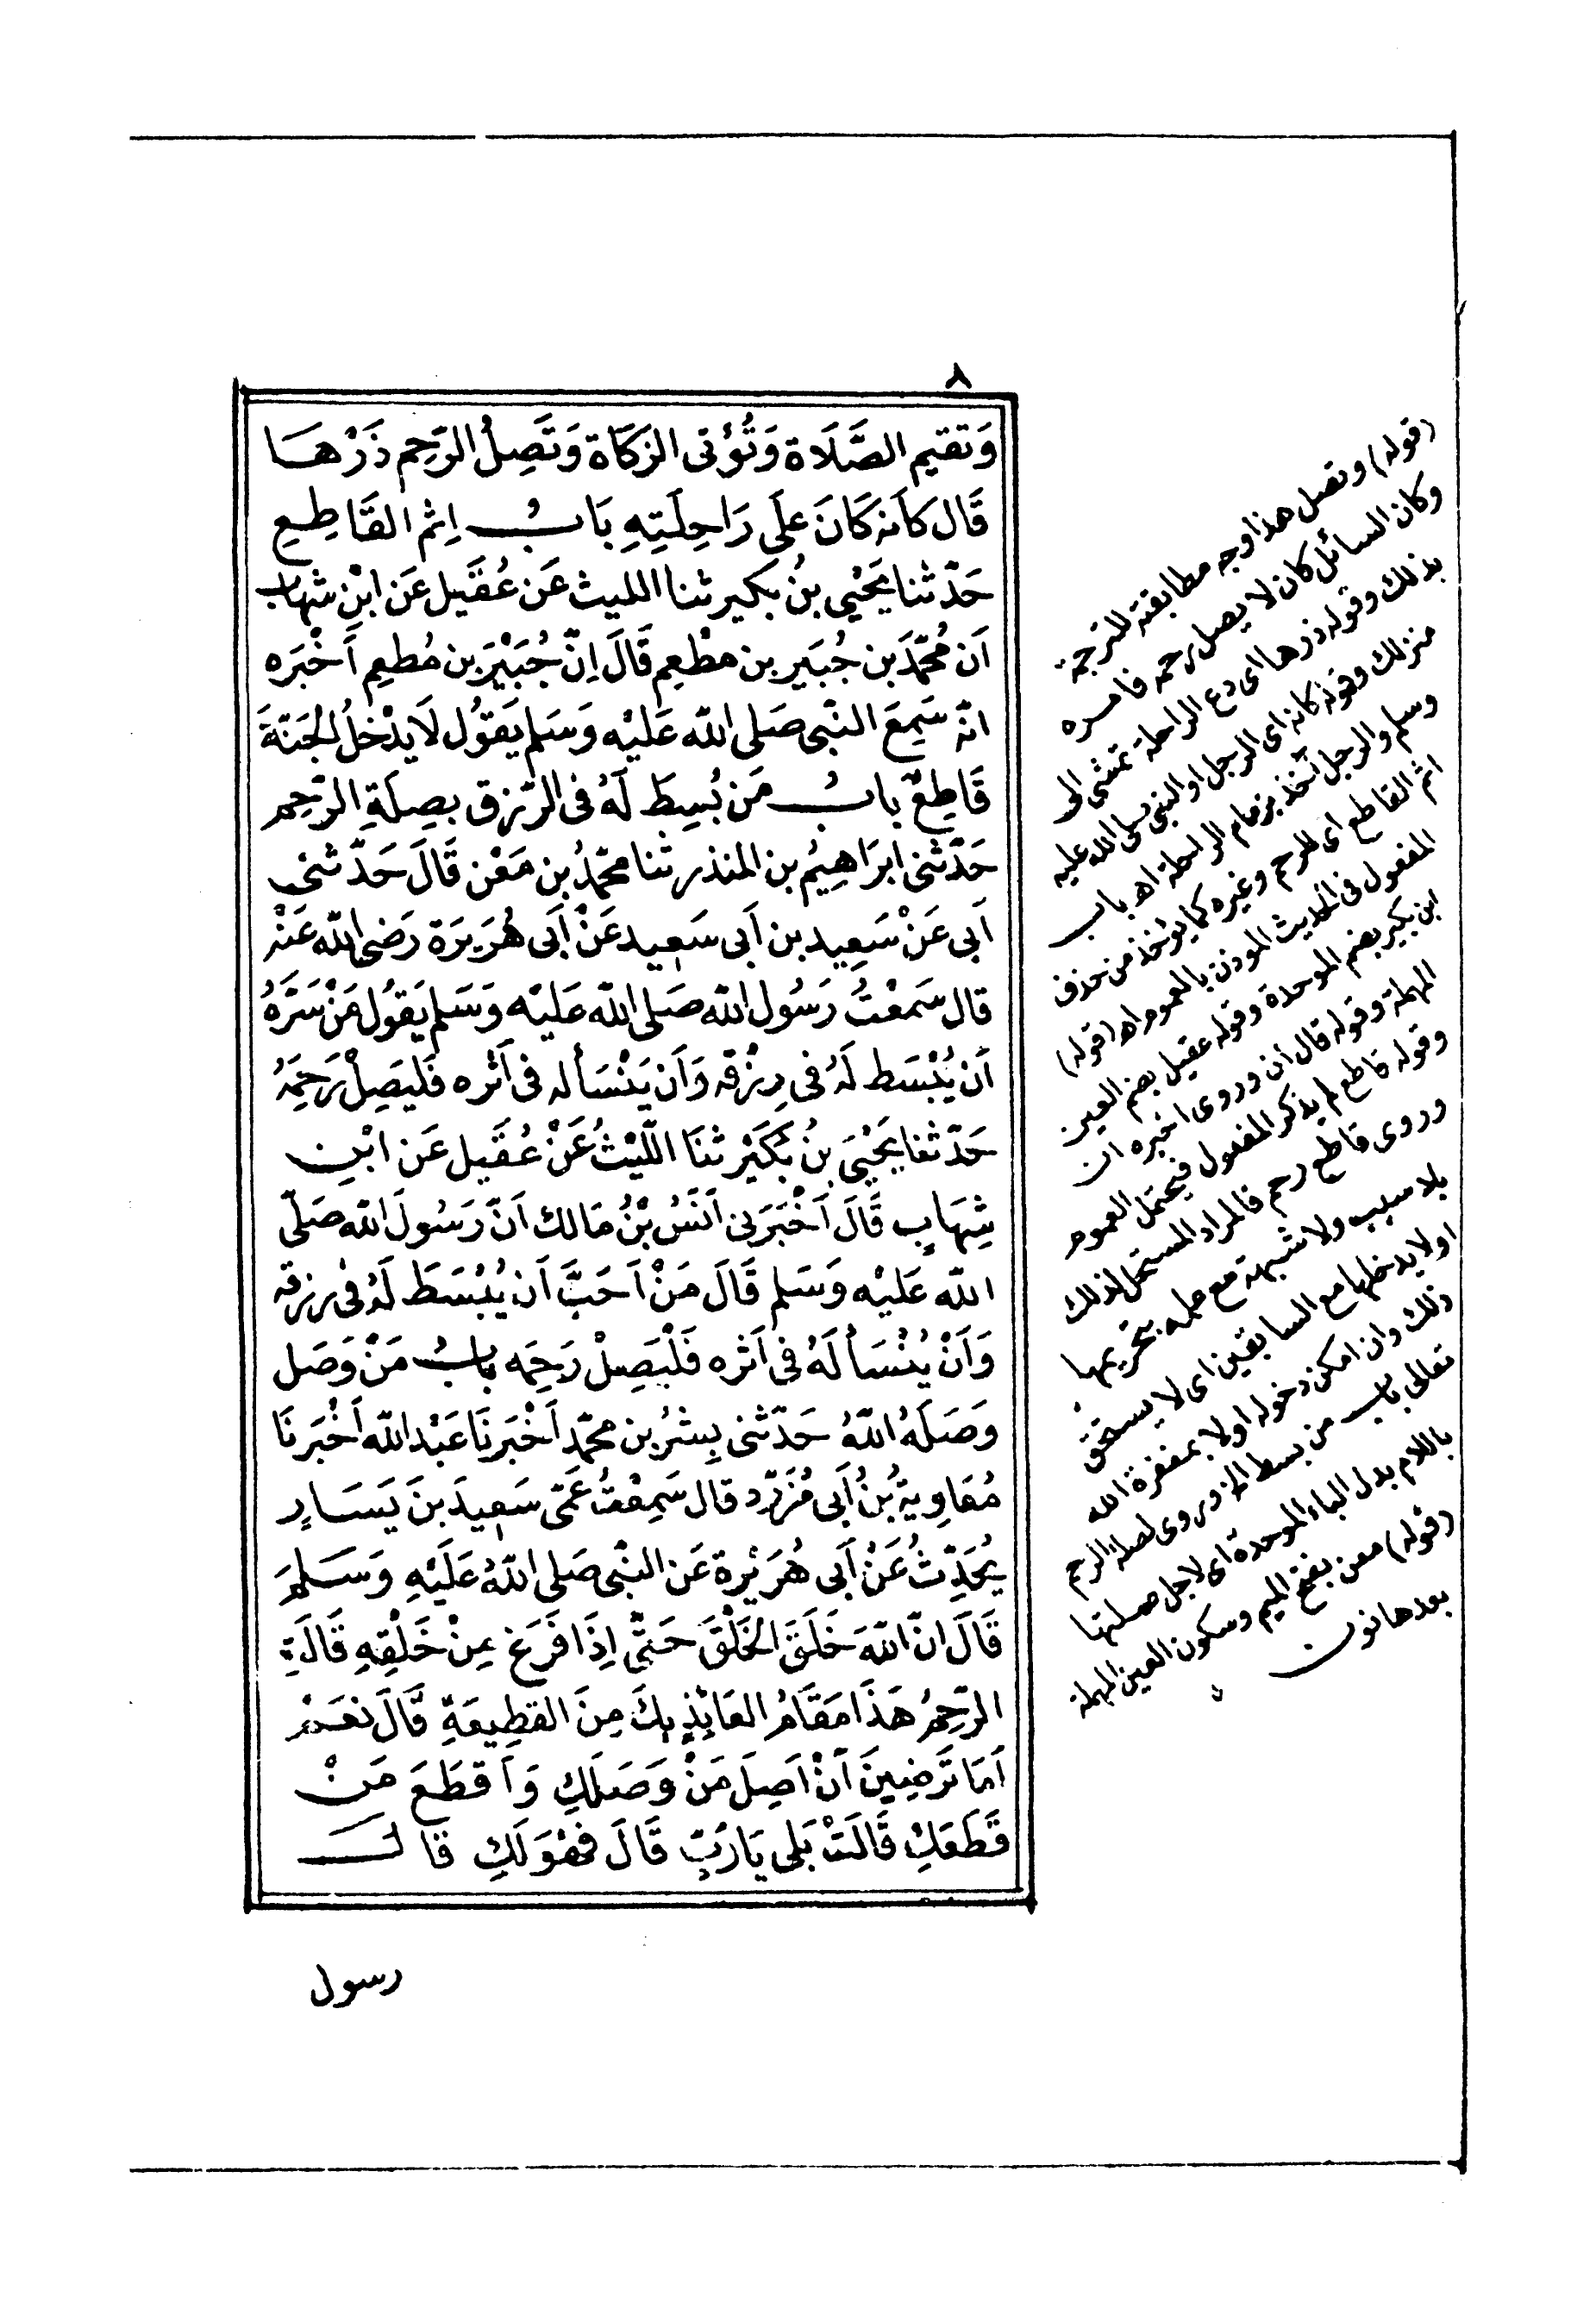 ٨
وَتقيم الصَّلَاة وَتُؤتى الزكَاة وَتَصِلُ الرَّحِم ذَرْهَا
قَال كَأنه كَانَ عَلَى رَاحِلَتِهِ بَابُ اِثم القَاطِعِ
حَدّثنا يَحْيى بنُ بكير ثنا الليث عَن عُقَيل عَن ابْنِ شهاب
اَن مُحمّدَ بن جُبَير بن مطْعِم قَالَ اِنّ جُبَيْرَ بن مُطعِم اَخْبَره
انّه سَمِعَ النّبى صَلى اللّه عَليْه وَسَلم يَقوُل لَا يدْخلُ الجَنّةَ
قَاطِعٌ بابُ مَن بُسِطَ لَهُ فى الرّزق بصِلَةِ الرّحِم
حَدّثنى ابرَاهِيمُ بن المنذر ثنا محمّدُ بن مَعْن قَالَ حَدّثنى
اَبى عَنْ سَعِيد بن اَبى سَعيد عَنْ اَبى هُرَيرَة رَضى اللّه عَنْه
قال سَمعْتُ رَسُول اللّه صَلى اللّه عَليْه وَسَلم يَقوُل مَنْ سَرّهُ
اَن يُبْسَط لَهُ فى رِزْقه وَاَن يَنْسَأ له فى اَثره فَليَصِلْ رَحِمَهُ
حَدّثنا يَحْيَى بنُ بُكَيْر ثنَا اللّيْثُ عَنْ عُقَيل عَن ابْنِ
شِهَابٍ قَالَ اَخْبَرَنى اَنَسُ بْنُ مَالك اَنّ رَسُولَ اللّه صَلّى
اللّه عَليْه وَسَلم قَالَ مَنْ اَحَبَّ اَن يُبْسَطَ لَهُ فى رزقه
وَاَنْ يُنْسَأ لَهُ فى اَثره فَلْيَصِلْ رَحِمَه بابُ مَنْ وَصَل
وَصَلَهُ اللّهُ حَدّثنى بِشرُ بن محمّد اَخْبَرنَا عَبْد اللّه اَخْبَرنَا
مُعَاوِيةُ بنُ اَبى مُزَرّد قال سَمِعْتُ عَمّى سَعيدَ بنَ يَسَارٍ
يُحَدِّثُ عَنْ اَبى هُرَيْرة عَن النّبى صَلى اللّهُ عَلَيْهِ وَسَلمَ
قَالَ انّ اللّهَ خَلَقَ الخَلْقَ حَتّى اِذَا فَرَغ مِنْ خَلْقِهِ قَالَتِ
الرّحِمُ هَذَا مَقَامُ العَائِذِ بِكَ مِنَ القطِيعَةِ قَالَ نعَمْ
اَمَا تَرضِينَ اَنْ اَصِلَ مَنْ وَصَلَكِ وَاَقطَعَ مَنْ
قَطَعَكِ قَالَتْ بَلى يَارَبِّ قَالَ فَهْوَ لَكِ قالَ
رسول
(قوله) وتصل هذا وجه مطابقته للترجمة
وكان السائل كان لا يصل رحمه فامره
بذلك وقوله ذرها اى دع الراحلة تمشى الى
منزلك وقوله كانه اى الرجل او النبى صلى الله عليه
وسلم والرجل آخذ بزمام الراحلة اه باب
اثم القاطع اى للرحم وغيره كما يؤخذ من حذف
المفعول فى الحديث المؤذن بالعموم اه (قوله)
ابن بكير بضم الموحدة وقوله عقيل بضم العين
المهملة وقوله قال أن وروى اخبره ان
وقوله قاطع لم يذكر المفعول فيحتمل العموم
وروى قاطع رحم فالمراد المستحل لذلك
بلا سبب ولا شبهة مع علمه بتحريمها
اولا يدخلها مع السابقين اى لا يستحق
ذلك وان امكن دخوله اولا بمغفرة الله
تعالى باب من بسط الخ وروى لصلة الرحم
باللام بدل الباء الموحدة اى لاجل صلتها
(قوله) معن بفتح الميم وسكون العين المهملة
بعدها نون